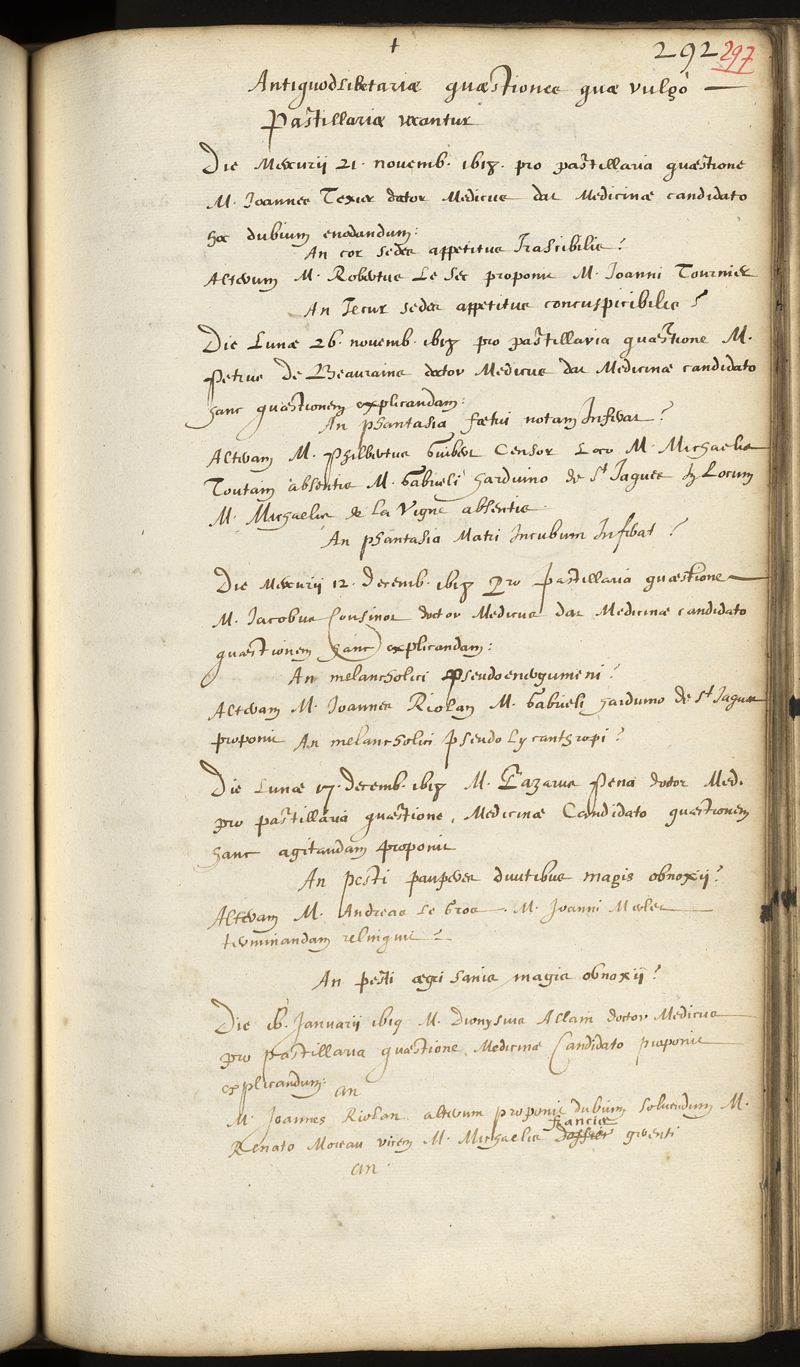 292 297
Antiquodlibetariæ quæstiones quæ vulgò
Pastillariæ vocantur
Die Mercurij 21. novemb. 1618. pro pastillaria quæstione
M. Joannes Texier doctor Medicus dat Medicinæ candidato
hoc dubium enodandum:
An cor sedes appetitus Irascibilis?
Alterum M. Robertus Le Sec proponit M. Joanni Tournier
An Jecur sedes appetitus concuspicibilis?
Die Lunæ 26. novemb. 1618 pro pastillaria quæstione M.
Petrus De Beaurains doctor Medicus dat Medicinæ candidato
hanc quæstionem explicandam:
An phantasia fœtui notam Inferat?
Alteram M. Philbertus Guibert Censor Loco M. Michaelis
Toutam absentis M. Gabrieli harduino de St Jaques In Locum
M. Michaelis de la Vigne absentis
An phantasia Matri Incubum Inferat?
Die Mercurij 12. Decemb. 1618 Pro pastillaria quæstione
M. Jacobus Cousinot doctor Medicus dat Medicinæ candidato
quæstionem hanc explicandam:
An melancholici Pseudoenergumeni?
Alteram M. Joannes Riolan M. Gabrieli harduino de St Jaques
proponit An melancholici pseudo Lycanthropi?
Die Lunæ 17. decemb. 1618 M. Lazarus Pena doctor Med.
pro pastillaria quæstione, Medicinæ Candidato quæstionem
hanc agitandam proponit
An Pesti pauperes divitibus magis obnoxij?
Alteram M. Andreas Le Gros M. Joanni Merlet
terminandam relinquit
An pesti ægri sanis magis obnoxij?
Die 16. Januarij 1619 M. Dionysius Allain doctor Medicus
pro pastillaria quæstione Medicinæ Candidato proponit
explicandum:
an
M. Joannes Riolan alterum proponit dubium solvendum M.
francis
Renato Moreau vicem M. Michaelis gerenti
an